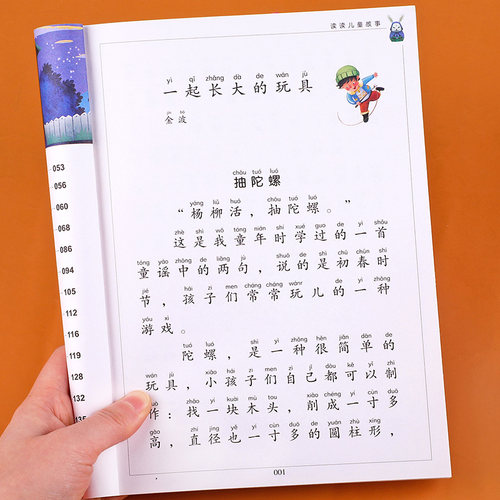 053
056
060
068
086
094
105
112
116
119
128
132
135
读读儿童故事
yì qǐ zhǎng dà de wán jù
一起长大的玩具
jīn bō
金波
chōu tuó luó
抽陀螺
yáng liǔ huó chōu tuó luó
“杨柳活，抽陀螺。”
zhè shì wǒ tóng nián shí xué guò de yì shǒu
这是我童年时学过的一首
tóng yáo zhōng de liǎng jù shuō de shì chū chūn shí
童谣中的两句，说的是初春时
jié hái zi men cháng cháng wánr de yì zhǒng
节，孩子们常常玩儿的一种
yóu xì
游戏。
tuó luó shì yì zhǒng hěn jiǎn dān de
陀螺，是一种很简单的
wán jù xiǎo hái zi men zì jǐ dōu kě yǐ zhì
玩具，小孩子们自己都可以制
zuò zhǎo yí kuài mù tou xiāo chéng yí cùn duō
作：找一块木头，削成一寸多
gāo zhí jìng yě yí cùn duō de yuán zhù xíng
高，直径也一寸多的圆柱形，
001